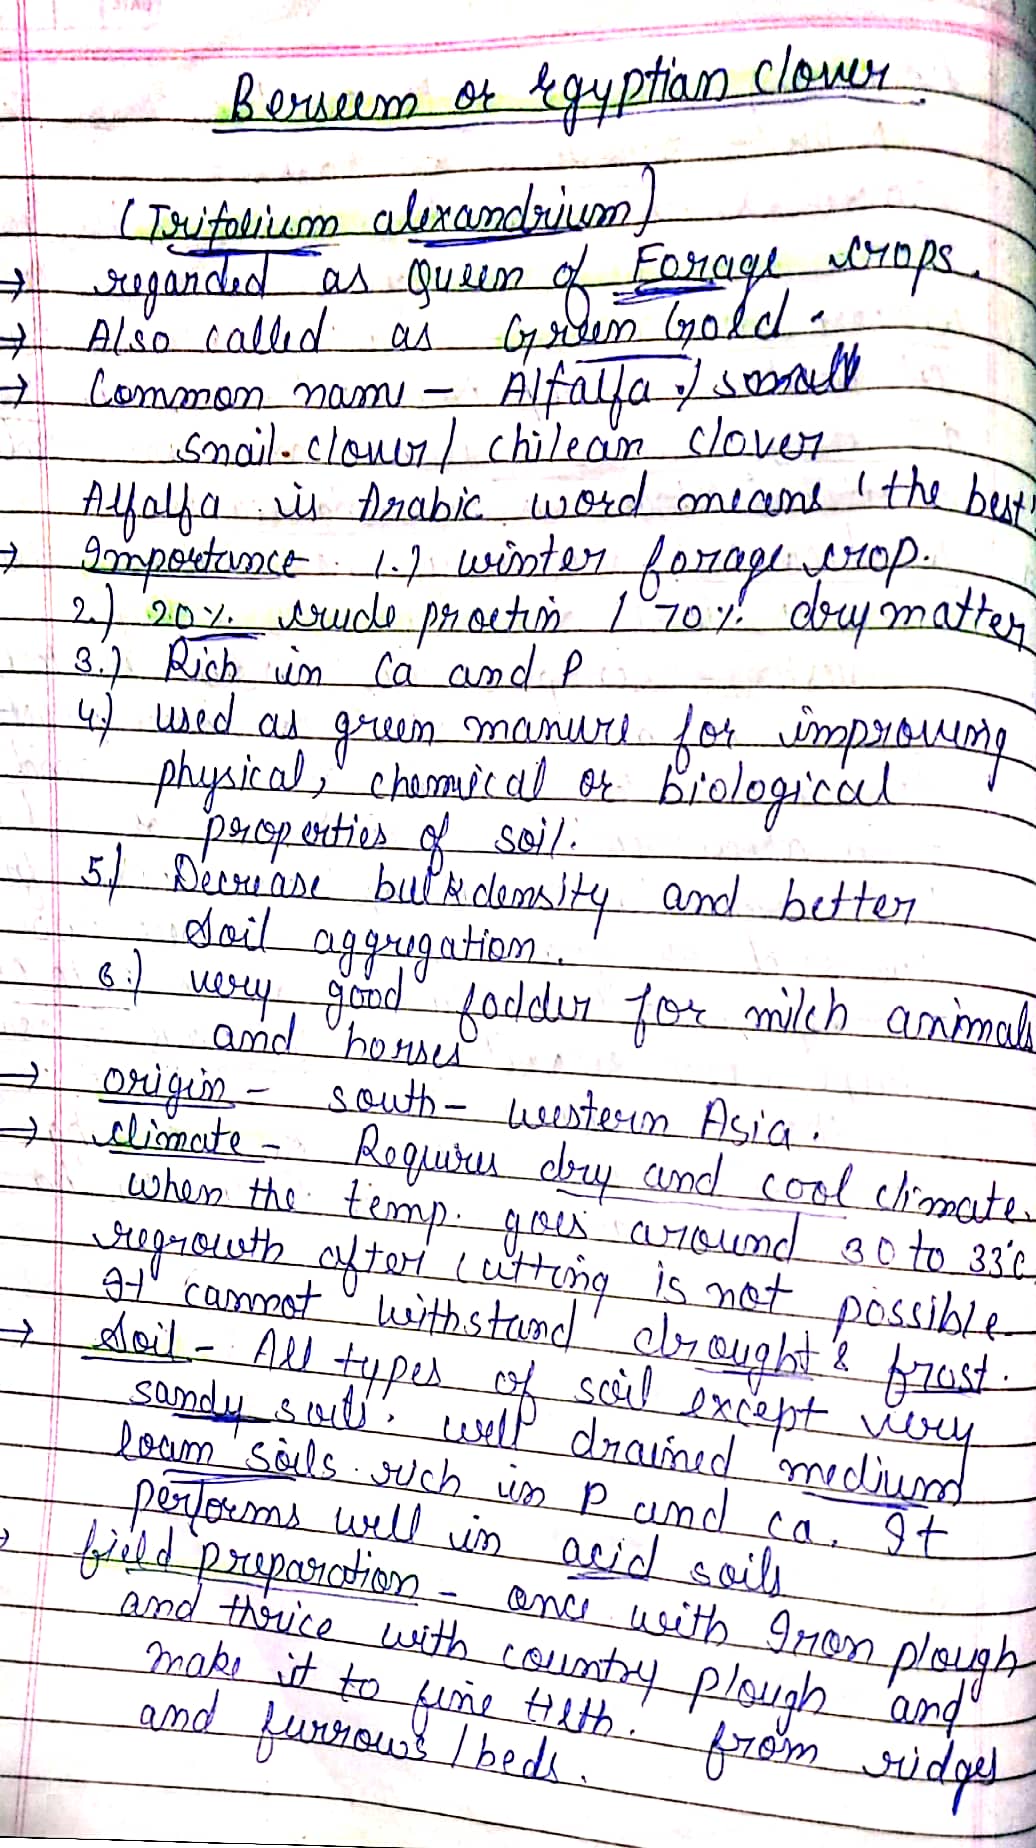 Berseem or Egyptian clover
(Trifolium alexandrium)
→ reganded as Queen of Forage crops.
→ Also called as Green Gold.
→ Common name - Alfalfa /
snail clover / chilean clover
Alfalfa is Arabic word means 'the best'
→ Importance 1.) winter forage crop.
2.) 20% crude proetin / 70% dry matter
3.) Rich in Ca and P
4.) used as green manure for improving
physical, chemical or biological
properties of soil.
5.) Decrease bulk density and better
soil aggregation.
6.) very good fodder for milch animals
and horses
→ origin - south-western Asia.
→ climate - Requires dry and cool climate.
when the temp. goes around 30 to 33°c
regrowth after cutting is not possible
It cannot withstand drought & frost.
→ Soil - All types of soil except very
sandy soils. well drained medium
loam soils rich in P and ca. It
performs well in acid soils
→ field preparation - once with Iron plough
and thrice with country plough and
make it to fine tilth. from ridges
and furrows / beds.